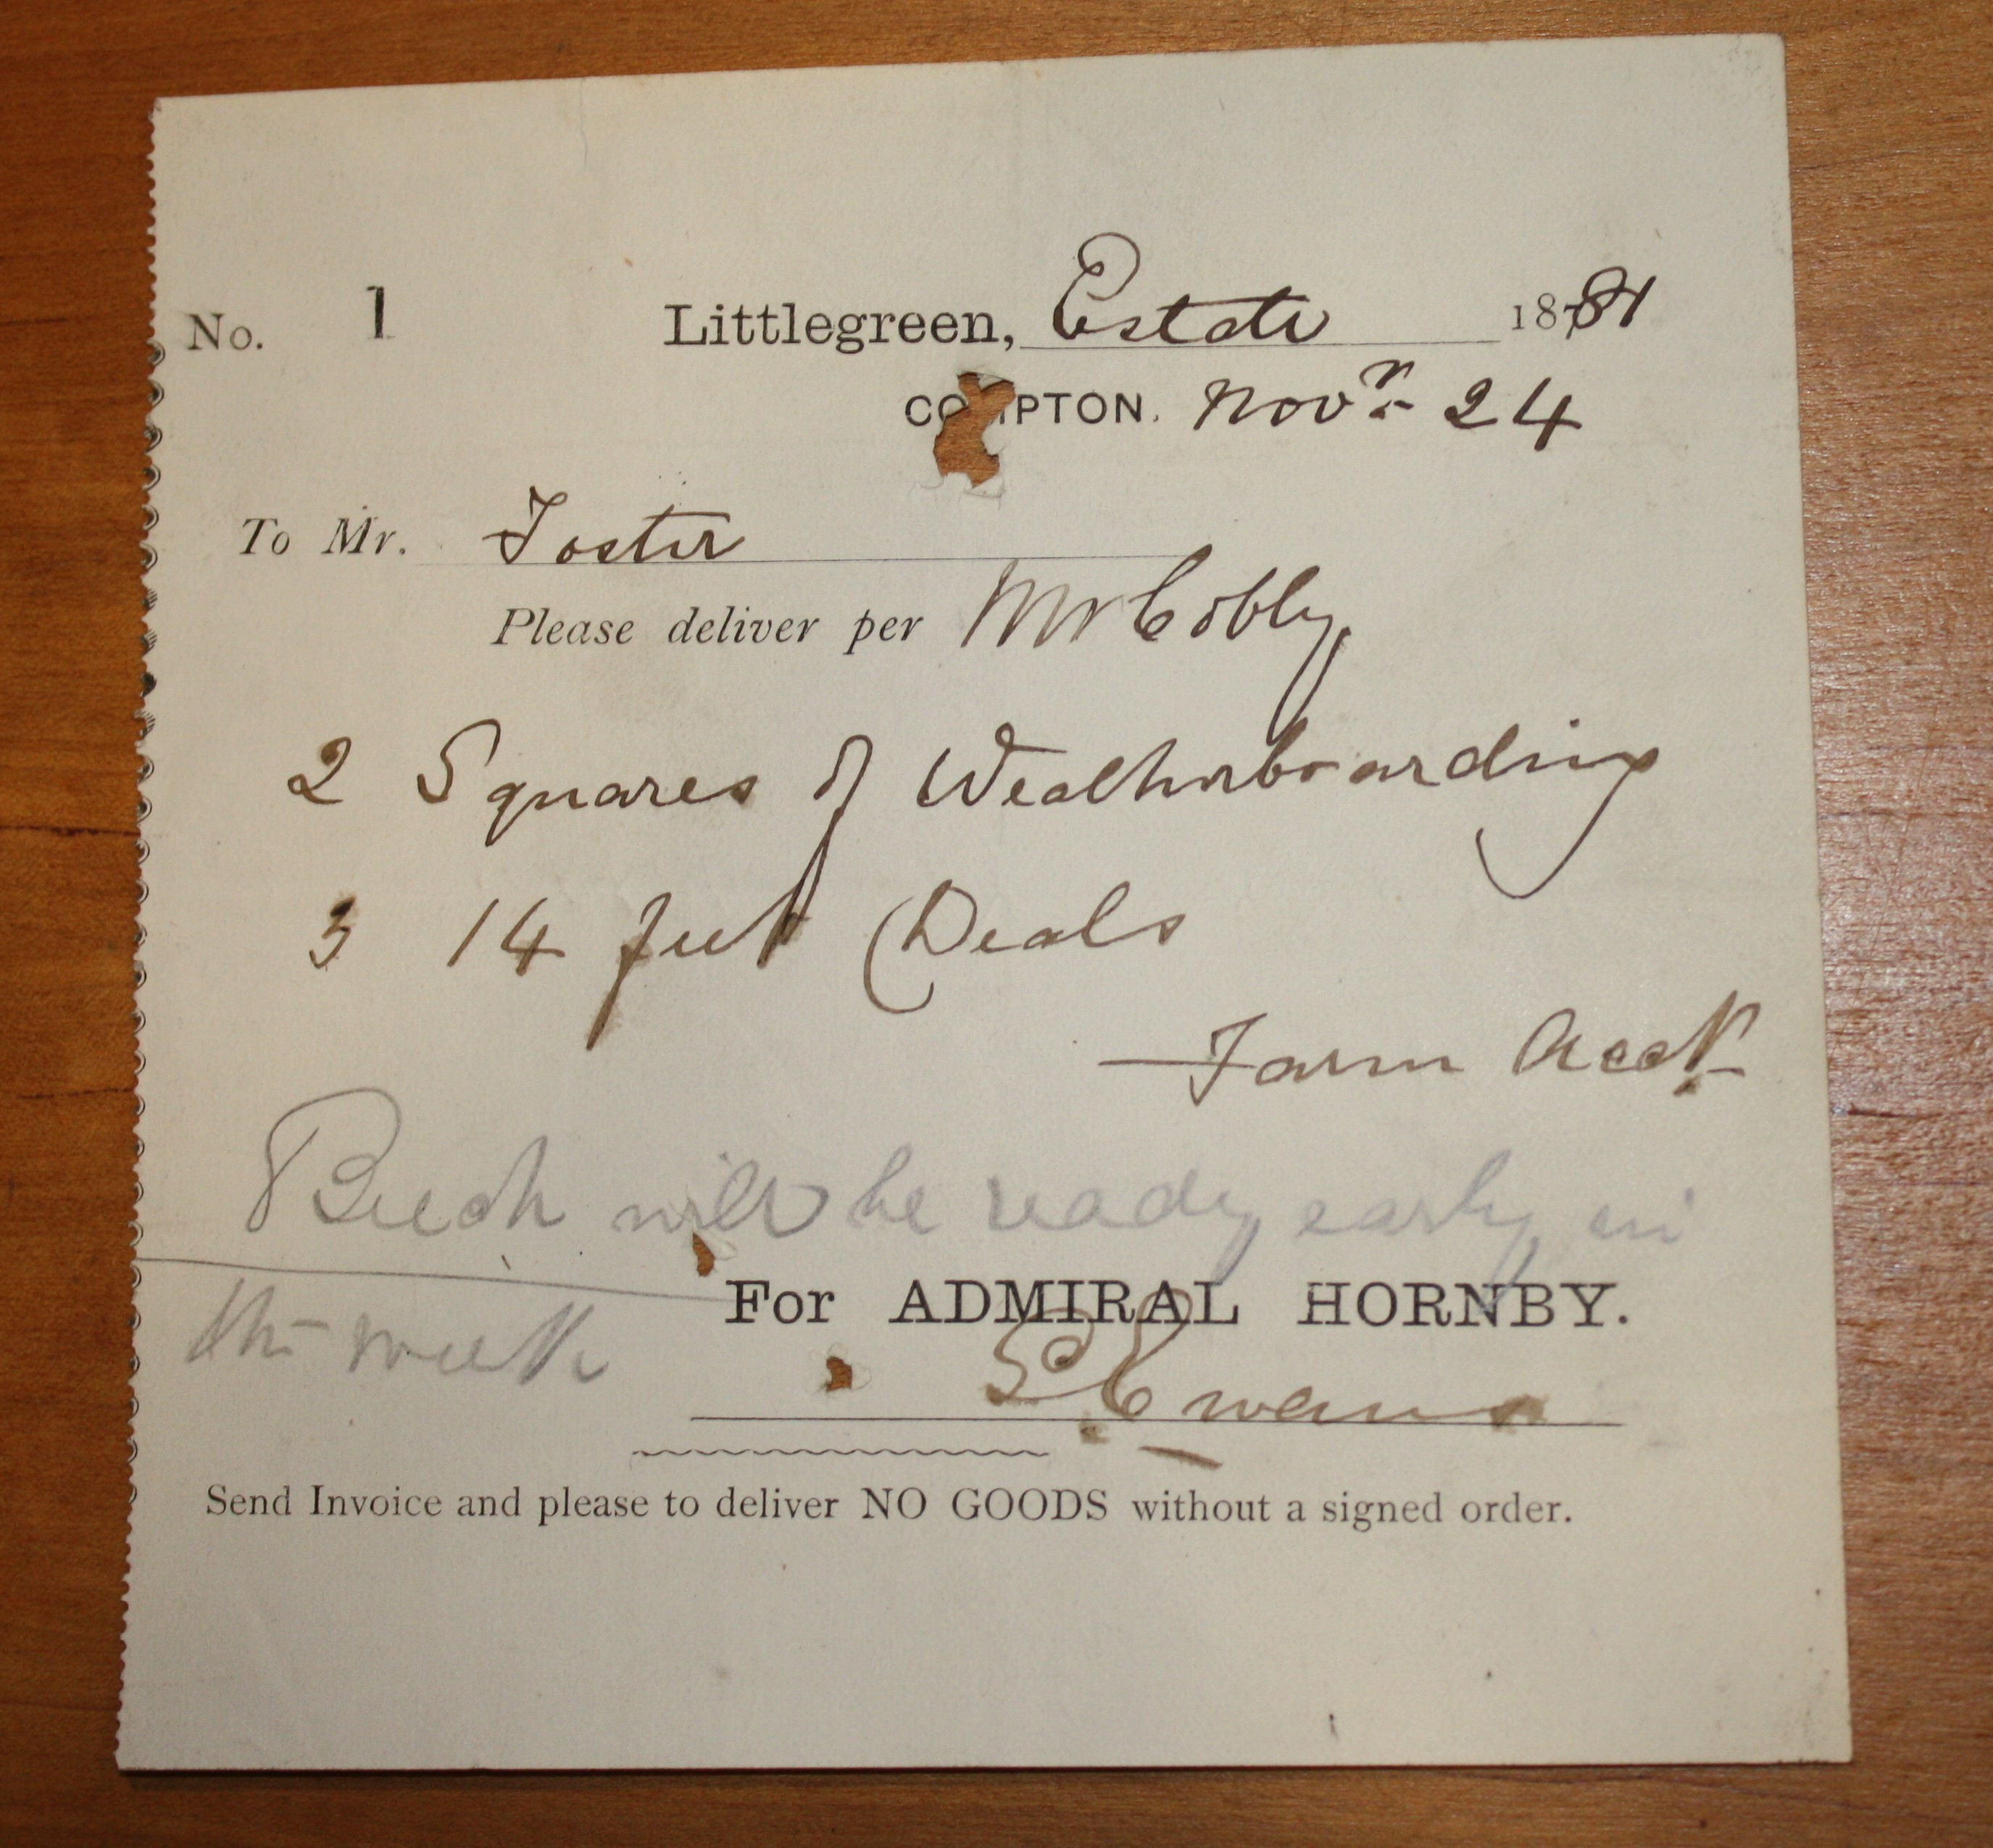 No. 1 Littlegreen, Estate 1881
COMPTON. Novr 24
To Mr. Foster
Please deliver per Mr Cobby
2 Squares of Weatherboarding
3 14 feet Deals
Farm Acct
Beech will be ready early in
the week
For ADMIRAL HORNBY.
Ewans
Send Invoice and please to deliver NO GOODS without a signed order.